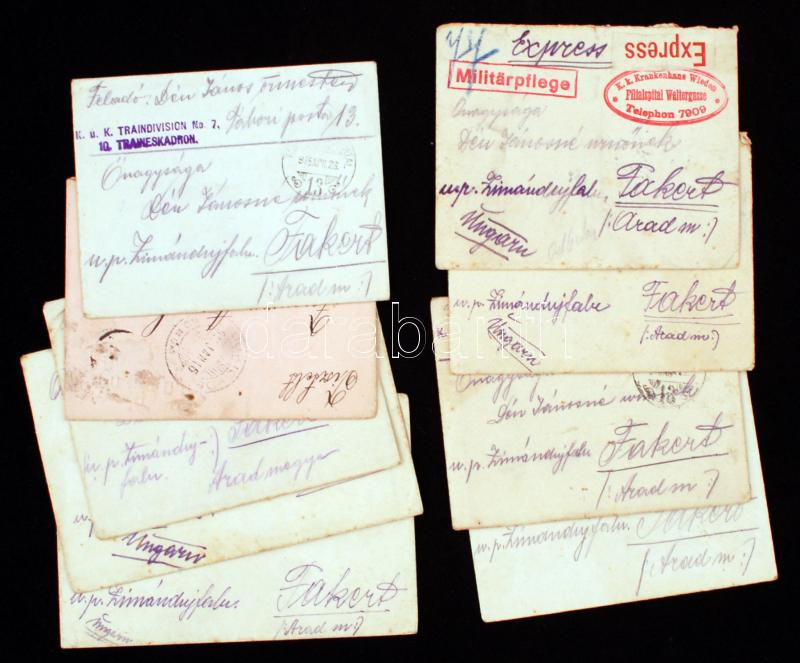 Feladó: Dén János
Tábori posta 13.
K. u. K. TRAINDIVISION No. 7,
10. TRAINESKADRON.
13
Önagysága
Dén Jánosné
u.p. Zimándujfalu.
Fakert
(: Arad m :)
u.p. Zimánduj-
falu.
Arad megye
Ungarn
u.p. Zimándujfalu.
Fakert
(: Arad m :)
Ungarn
Express
Express
Militärpflege
K. k. Krankenhaus Wieden
Filialspital Waltergasse
Telephon 7909
Önagysága
Dén Jánosné urnőnek
u.p. Zimándujfalu.
Fakert
(: Arad m :)
Ungarn
u.p. Zimándujfalu
Fakert
(: Arad m :)
Ungarn
Önagysága
Dén Jánosné
u.p. Zimándujfalu
Fakert
(: Arad m :)
u.p. Zimándujfalu.
Fakert
(: Arad m :)
darabanth